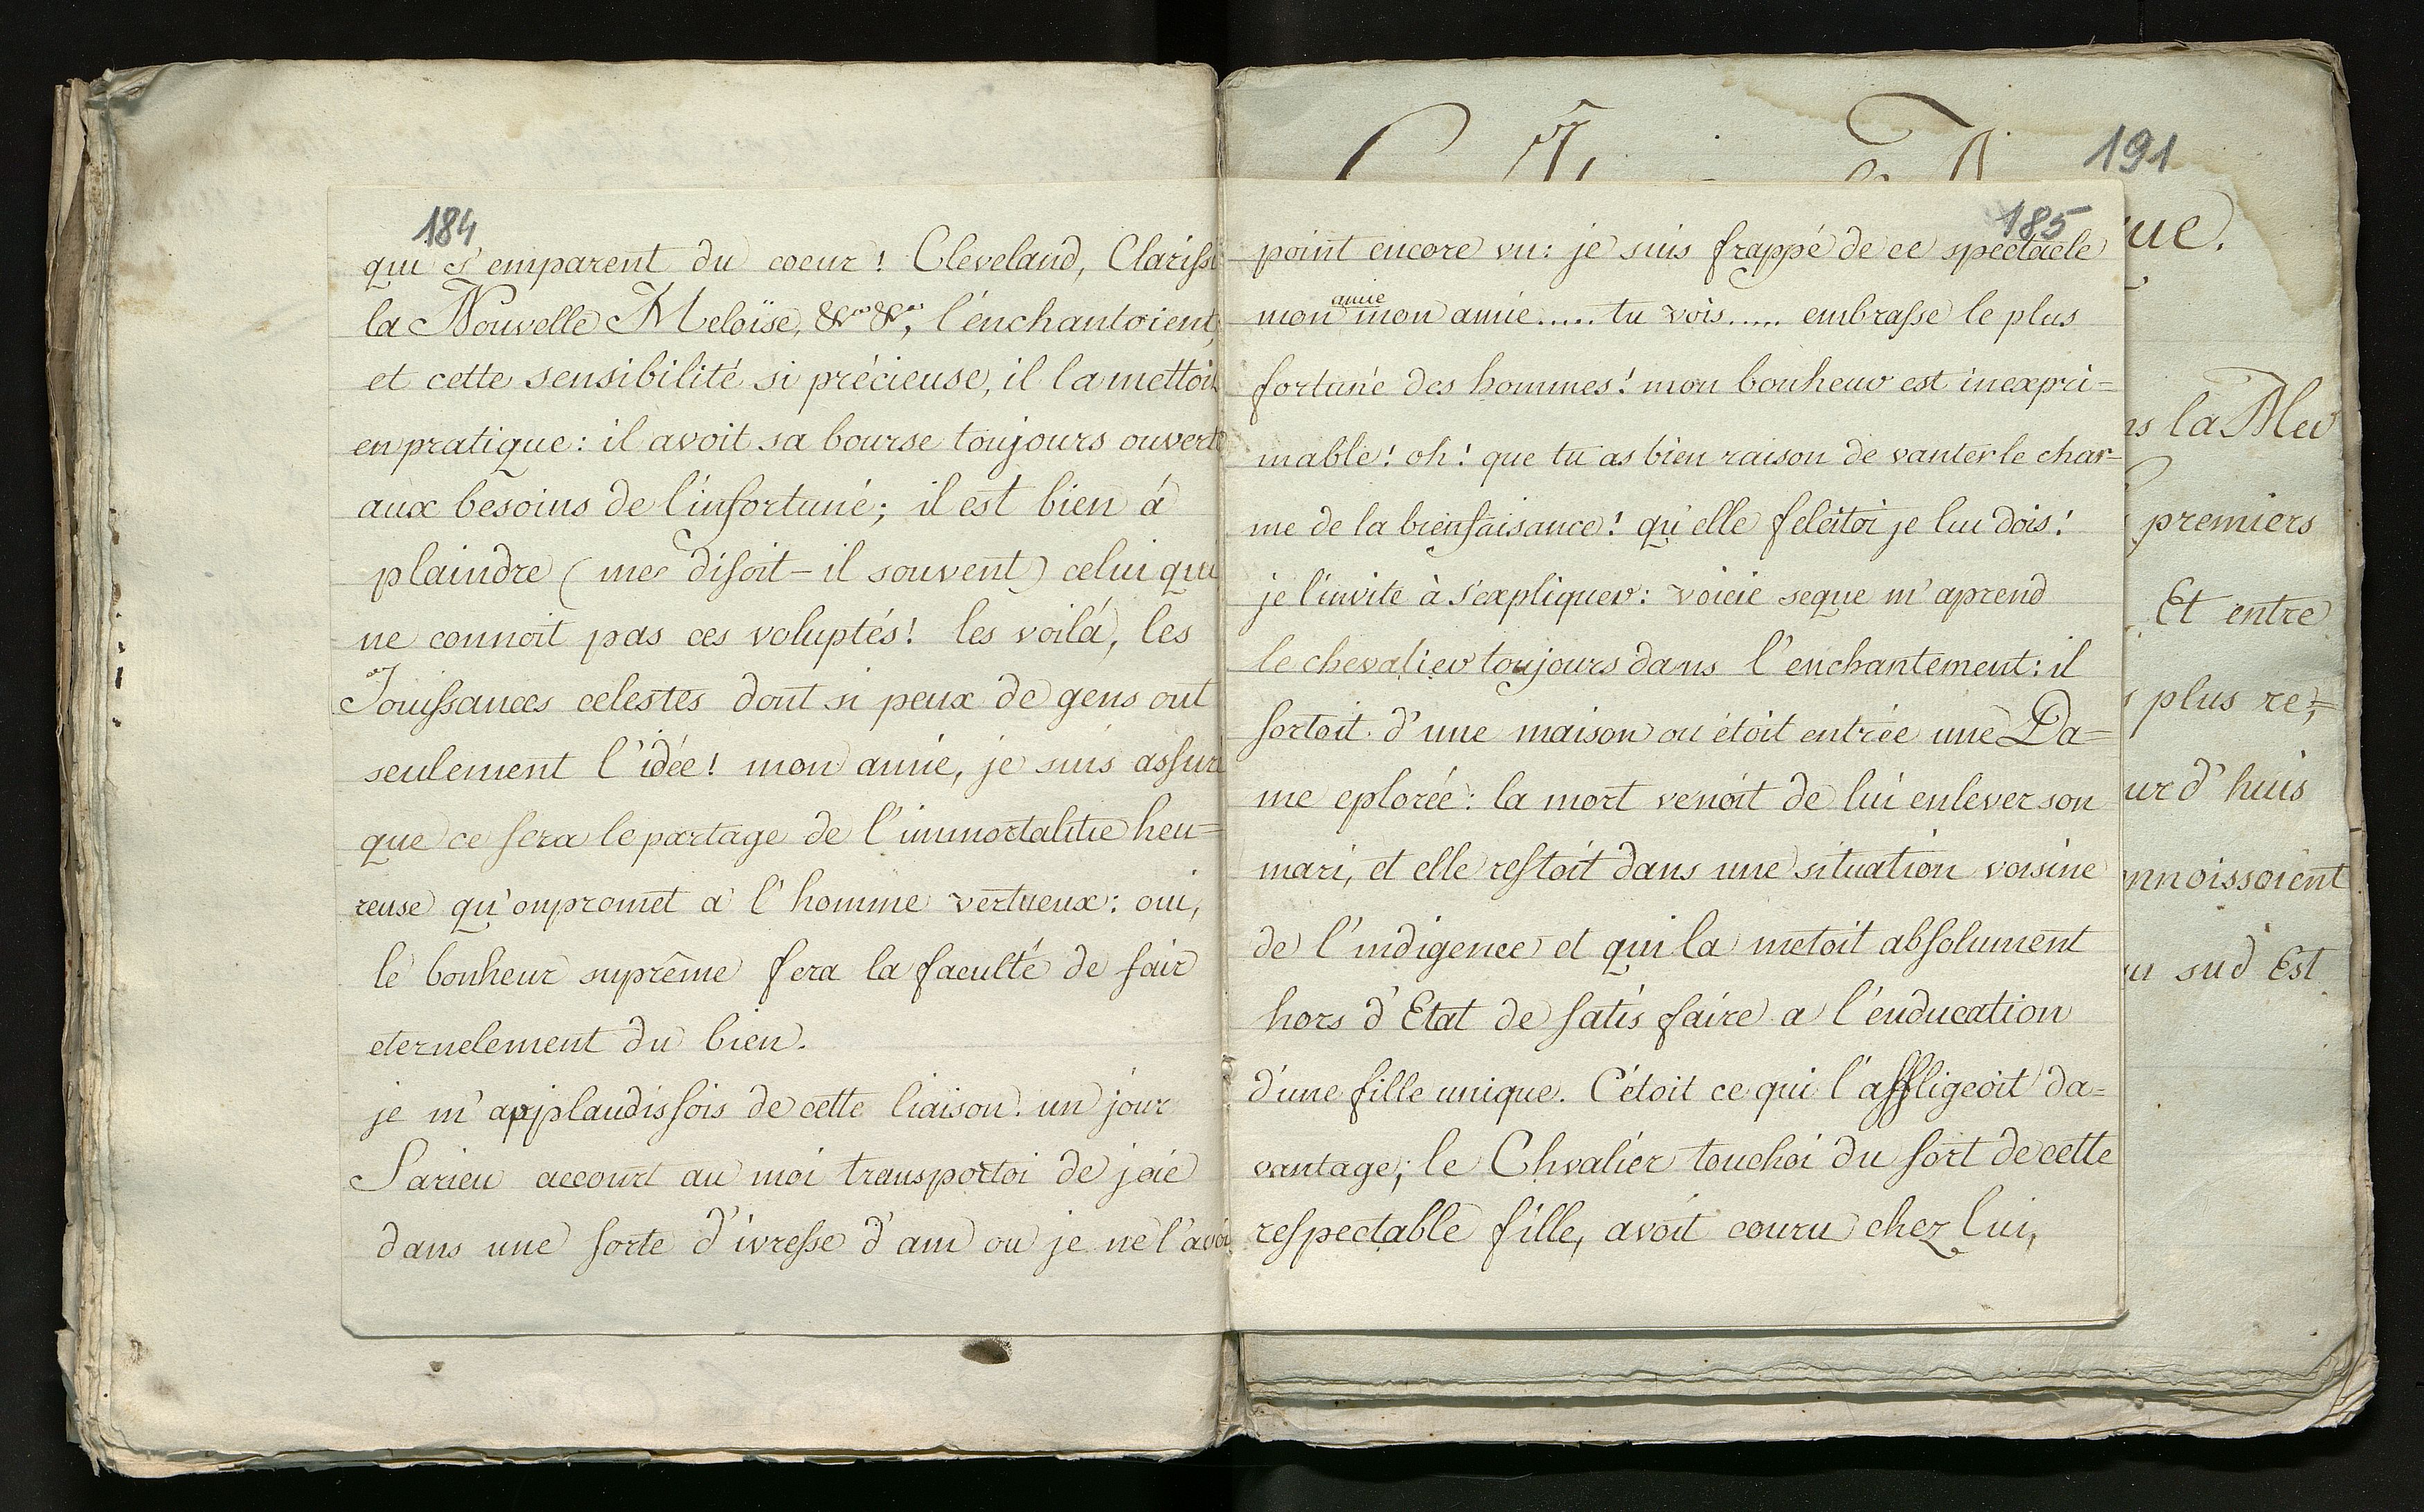 184
qui s'emparent du coeur! Cleveland, Clariss
la Nouvelle Heloïse, &ca &ca, l'enchantoient,
et cette sensibilité si précieuse, il la mettoit
en pratique: il avoit sa bourse toujours ouverte
aux besoins de l'infortuné; il est bien á
plaindre (me disoit-il souvent) celui qui
ne connoit pas ces voluptés! les voilá, les
Jouissances celestes dont si peux de gens ont
seulement l'idée! mon amie, je suis assuré
que ce sera le partage de l'immortalitie heu=
reuse qu'on promet a l'homme vertueux: oui,
le bonheur suprême sera la faculté de fair
eternelement du bien.
je m'applaudissois de cette liaison. un jour
Sarieu accourt au moi transportoi de joie
dans une sorte d'ivresse d'am ou je ne l'avoi
185
point encore vu: je suis frappé de ce spectacle
amie
mon mon amie..... tu vois..... embrasse le plus
fortuné des hommes! mon bonheur est inexpri=
mable! oh! que tu as bien raison de vanter le char=
me de la bienfaisance! qu'elle felcitoi je lui dois!
je l'invite à s'expliquer: voicie seque m'aprend
le chevalier toujours dans l'enchantement: il
sortoit d'une maison ou étoit entrée une Da=
me eplorée: la mort venoit de lui enlever son
mari, et elle restoit dans une situation voisine
de l'indigence et qui la metoit absolument
hors d'Etat de satis faire a l'énducation
d'une fille unique. C'étoit ce qui l'affligeoit da=
vantage; le Chvalier touchoi du sort de cette
respectable fille, avoit couru chez lui,
191
ue.
ns la Mer
premiers
Et entre
s plus re;=
ur d'huis
nnoissoient
sud Est